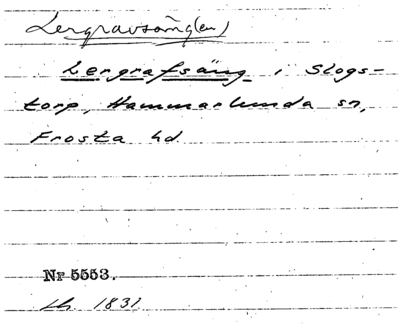 Lergravsäng(en)
Lergrafsäng i Slogs-
torp, Hammarlunda sn,
Frosta hd
Nr 5553.
Lh 1831